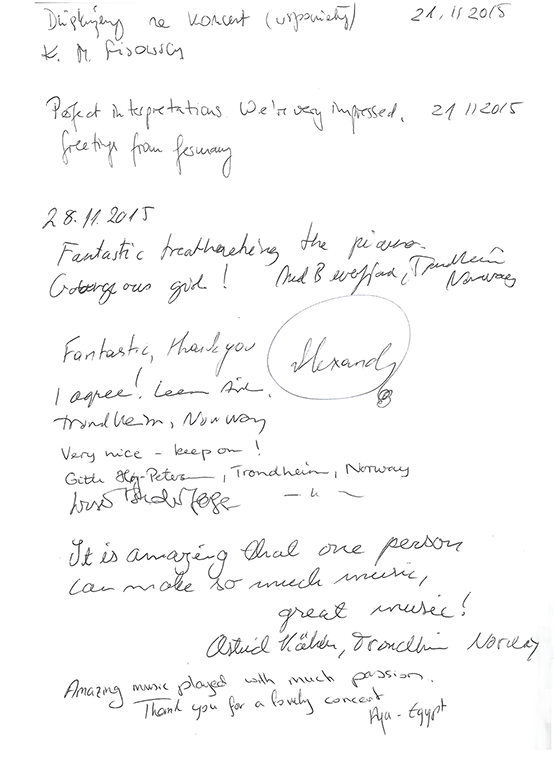 Dziękujemy za koncert (wspaniały) 21.11.2015
K. M.
Perfect interpretations. We're very impressed. 21 11 2015
Greetings from Germany
28.11.2015
Fantastic the piano.
girl! Trondheim
Norway
Fantastic, thank you
I agree!
Trondheim, Norway
Very nice - keep on!
Gitte Trondheim, Norway
It is amazing that one person
can make so much music,
great music!
Astrid Trondheim Norway
Amazing music played with much passion.
Thank you for a lovely concert
Aya - Egypt